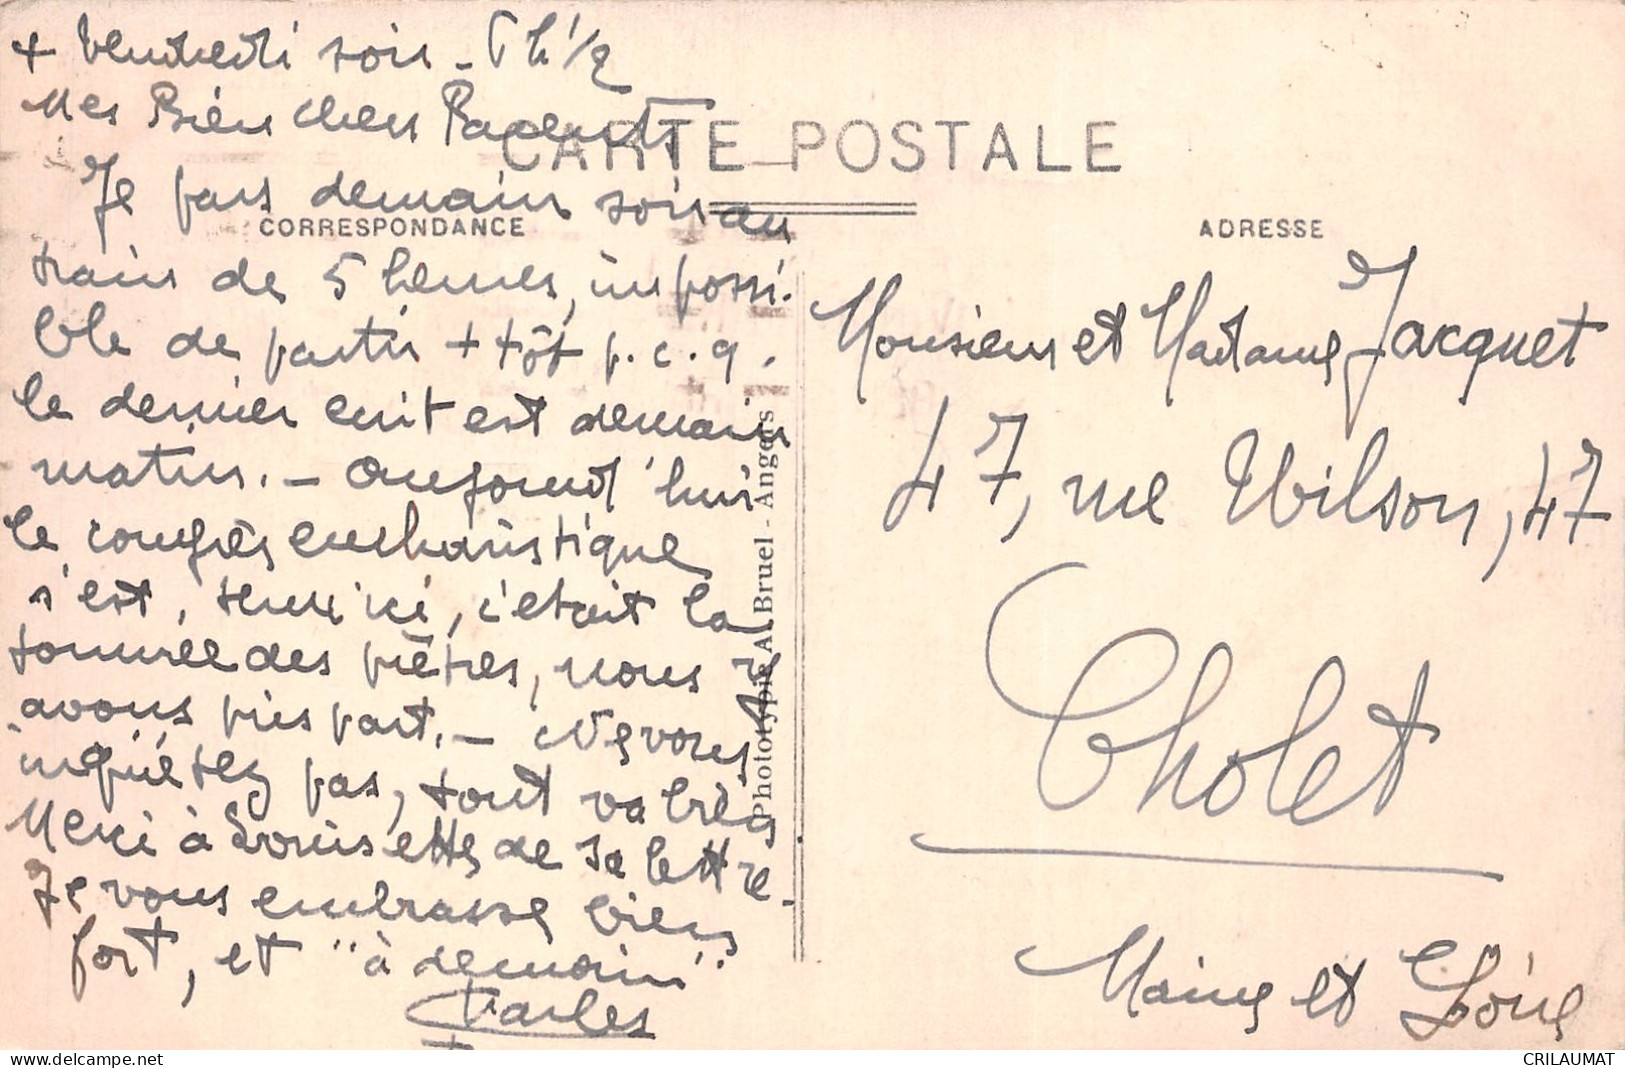 + Vendredi soir - 5 h 1/2
Mes Bien chers Parents
CARTE POSTALE
Je pars demain soir au
CORRESPONDANCE
train de 5 heures, impossi-
ble de partir + tôt p.c.q.
le dernier écrit est demain
matin. - Aujourd'hui
le congrès eucharistique
s'est tenu ici, c'était la
journée des prêtres, nous y
avons pris part. - Ne vous
inquiétez pas, tout va bien.
Merci à Louisette de sa lettre -
Je vous embrasse bien
fort, et "à demain".
Charles
Phototypie A. Bruel - Angers
ADRESSE
Monsieur et Madame Jacquet
47, rue Wilson, 47
Cholet
Maine et Loire
CRILAUMAT